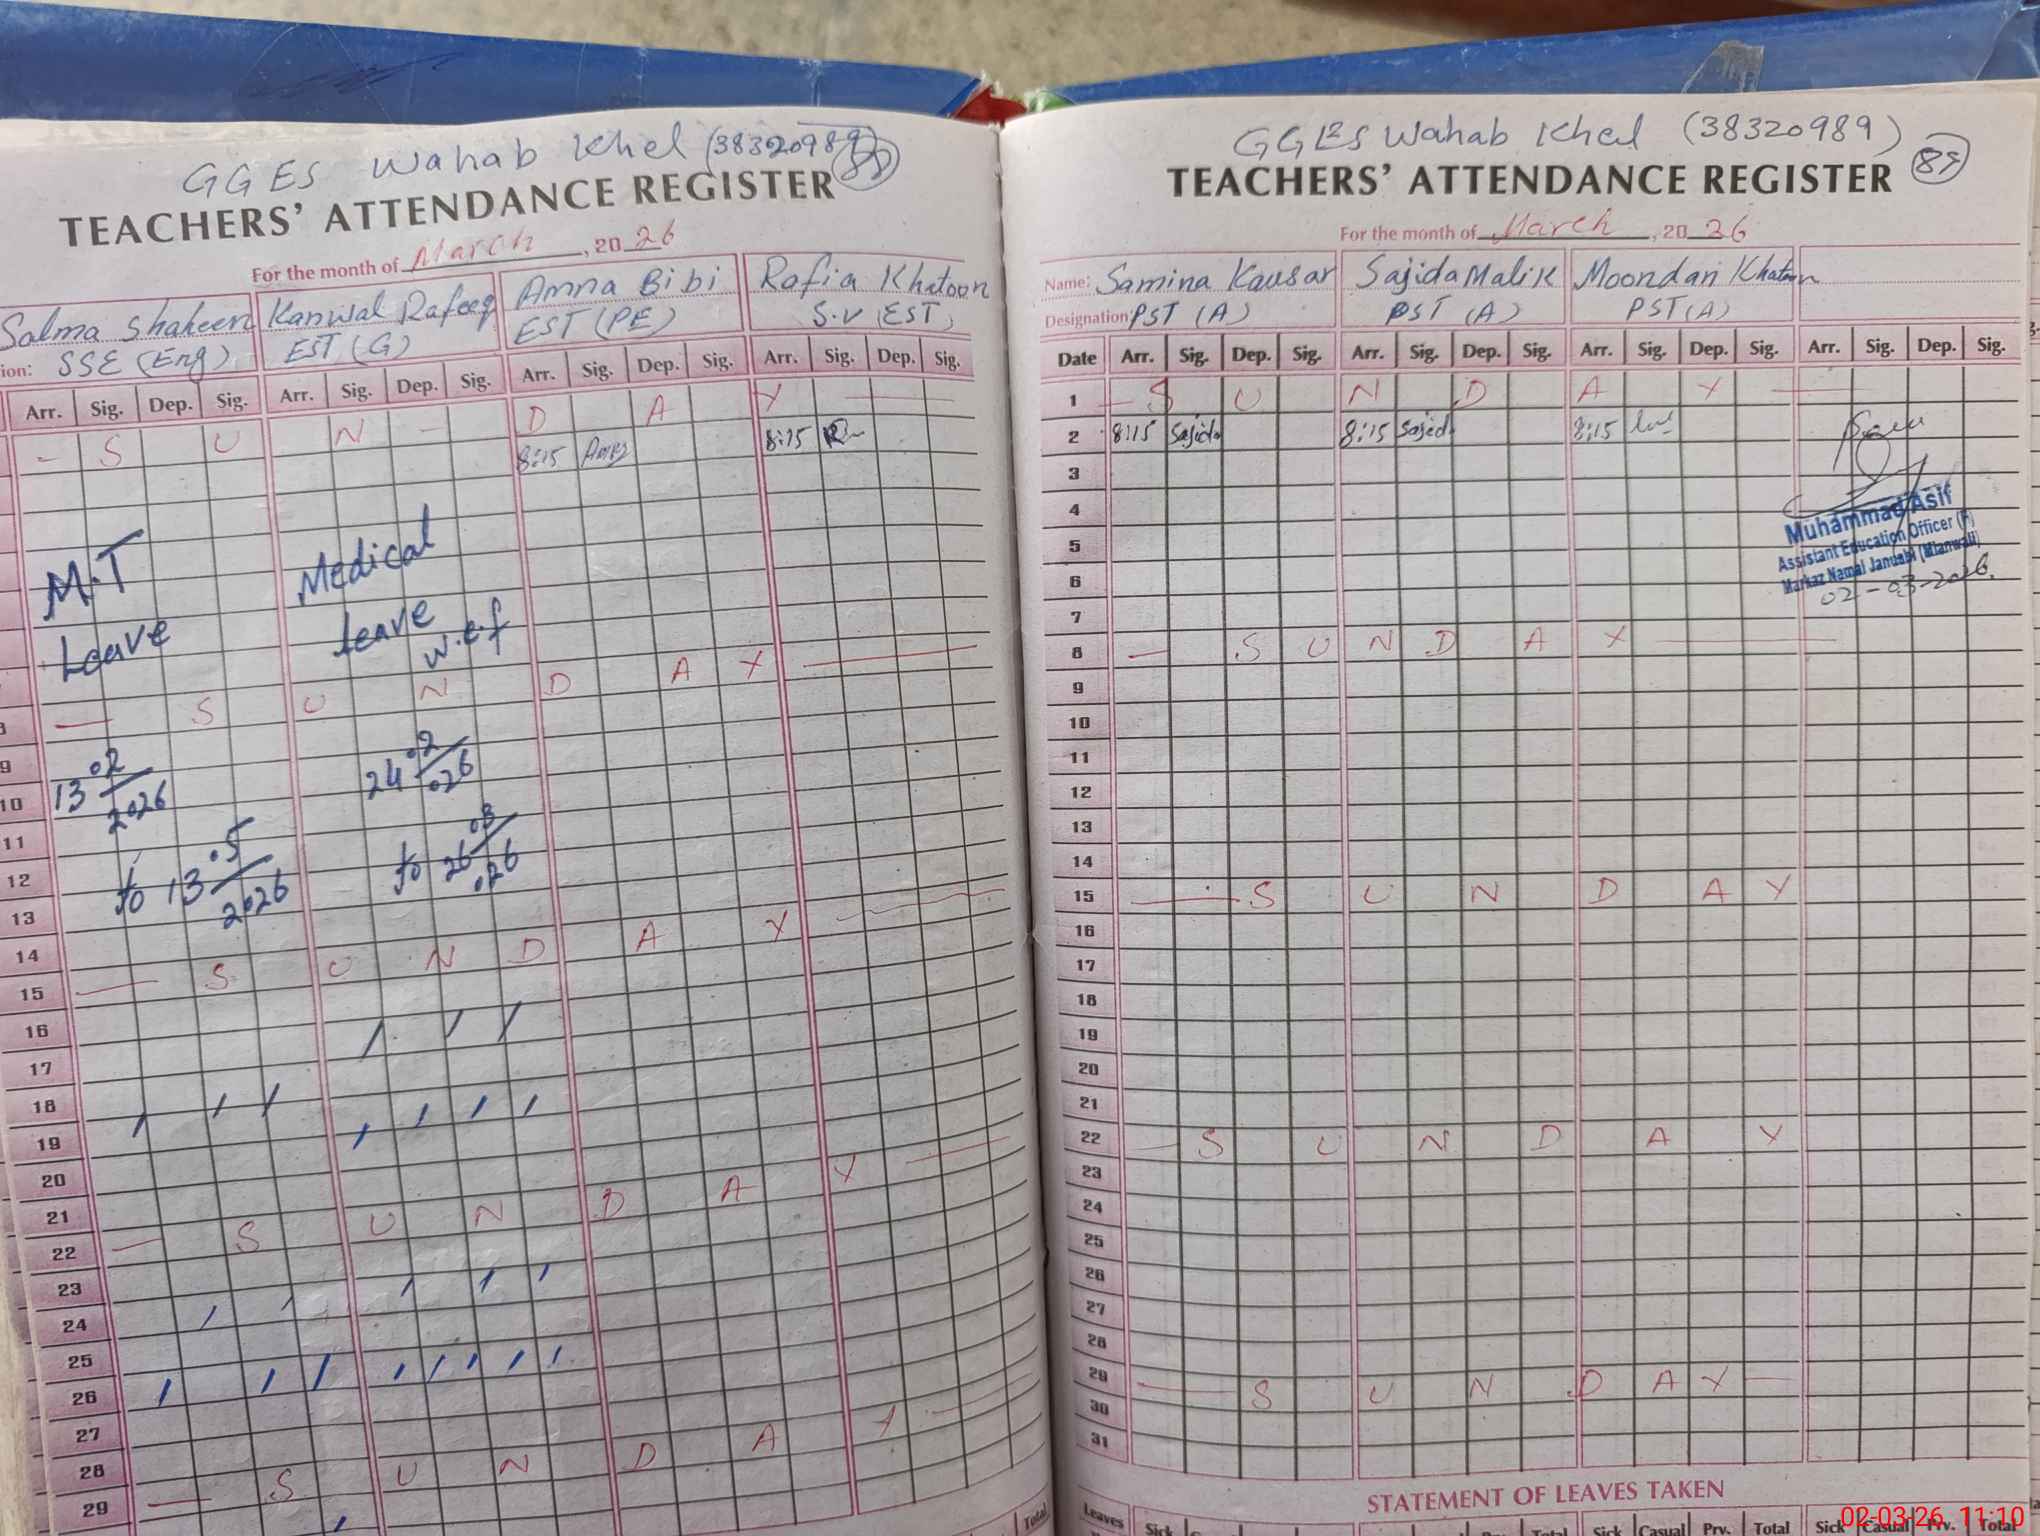 GGES Wahab Khel (38320989)
88
TEACHERS' ATTENDANCE REGISTER
For the month of March, 2026
Salma Shaheen Kanwal Rafeeq Amna Bibi Rafia Khatoon
ion: SSE (Eng) EST (G) EST (PE) S.V (EST)
Arr. Sig. Dep. Sig. Arr. Sig. Dep. Sig. Arr. Sig. Dep. Sig. Arr. Sig. Dep. Sig.
S U N D A Y
8:15 8:15
M.T Leave
Medical leave w.e.f
S U N D A Y
9
13.02/2026 24.02/.026
10
11
to 13.5/2026 to 26.03/.026
12
13
14
15 S U N D A Y
16
17
18
19
20
21
22 S U N D A Y
23
24
25
26
27
28
29 S U N D A Y
Total
GGES Wahab Khel (38320989)
TEACHERS' ATTENDANCE REGISTER
For the month of March, 2026
Name: Samina Kausar Sajida Malik Moondari Khatoon
Designation: PST (A) PST (A) PST (A)
Date Arr. Sig. Dep. Sig. Arr. Sig. Dep. Sig. Arr. Sig. Dep. Sig. Arr. Sig. Dep. Sig.
1 S U N D A Y
2 8:15 Sajida 8:15 Sajid 8:15
3
4
5
6
7
Muhammad Asif
Assistant Education Officer (F)
Markaz Namal Janubi (Mianwali)
02-03-2026
8 S U N D A Y
9
10
11
12
13
14
15 S U N D A Y
16
17
18
19
20
21
22 S U N D A Y
23
24
25
26
27
28
29 S U N D A Y
30
31
STATEMENT OF LEAVES TAKEN
Leaves Sick Total Sick Casual Prv. Total Sick Casual Prv. Total
02-03-26 11:10